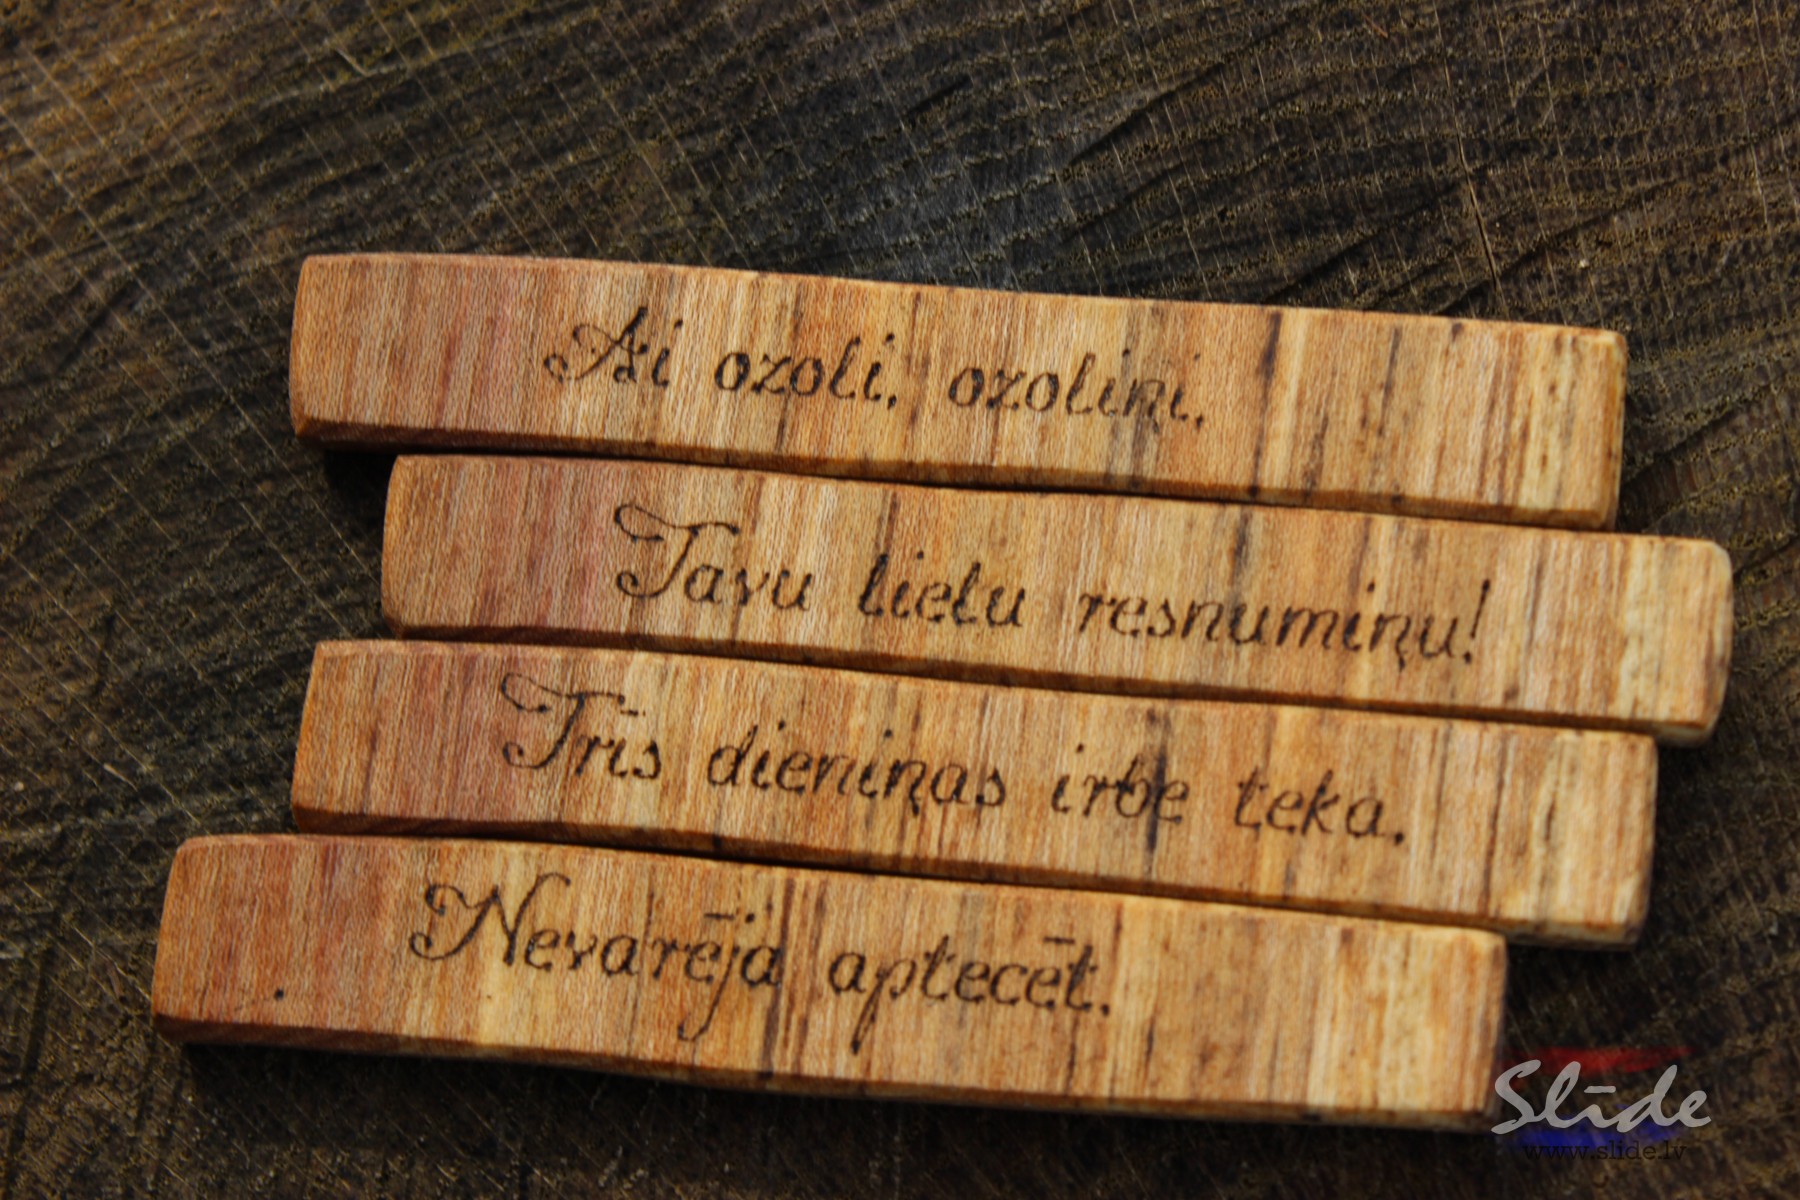 Ai ozoli, ozoliņi,
Tavu lielu resnumiņu!
Trīs dieniņas irbe teka,
Nevarēja aptecēt.
Slīde
www.slide.lv